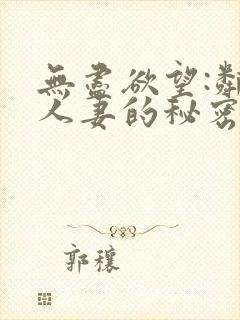 無盡欲望:鄰
人妻的秘密
郭穰